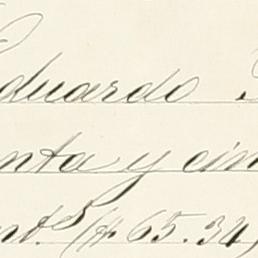 Eduardo
enta y cin
ent.s (# 65.34)